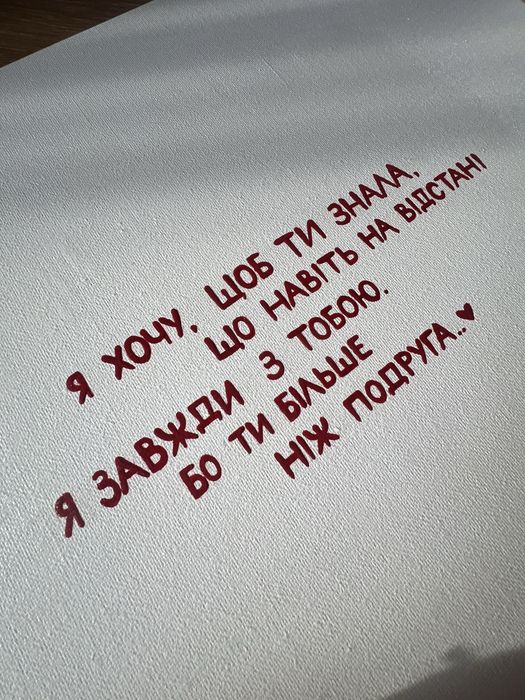 Я ХОЧУ, ЩОБ ТИ ЗНАЛА,
ЩО НАВІТЬ НА ВІДСТАНІ
Я ЗАВЖДИ З ТОБОЮ.
БО ТИ БІЛЬШЕ
НІЖ ПОДРУГА..♥